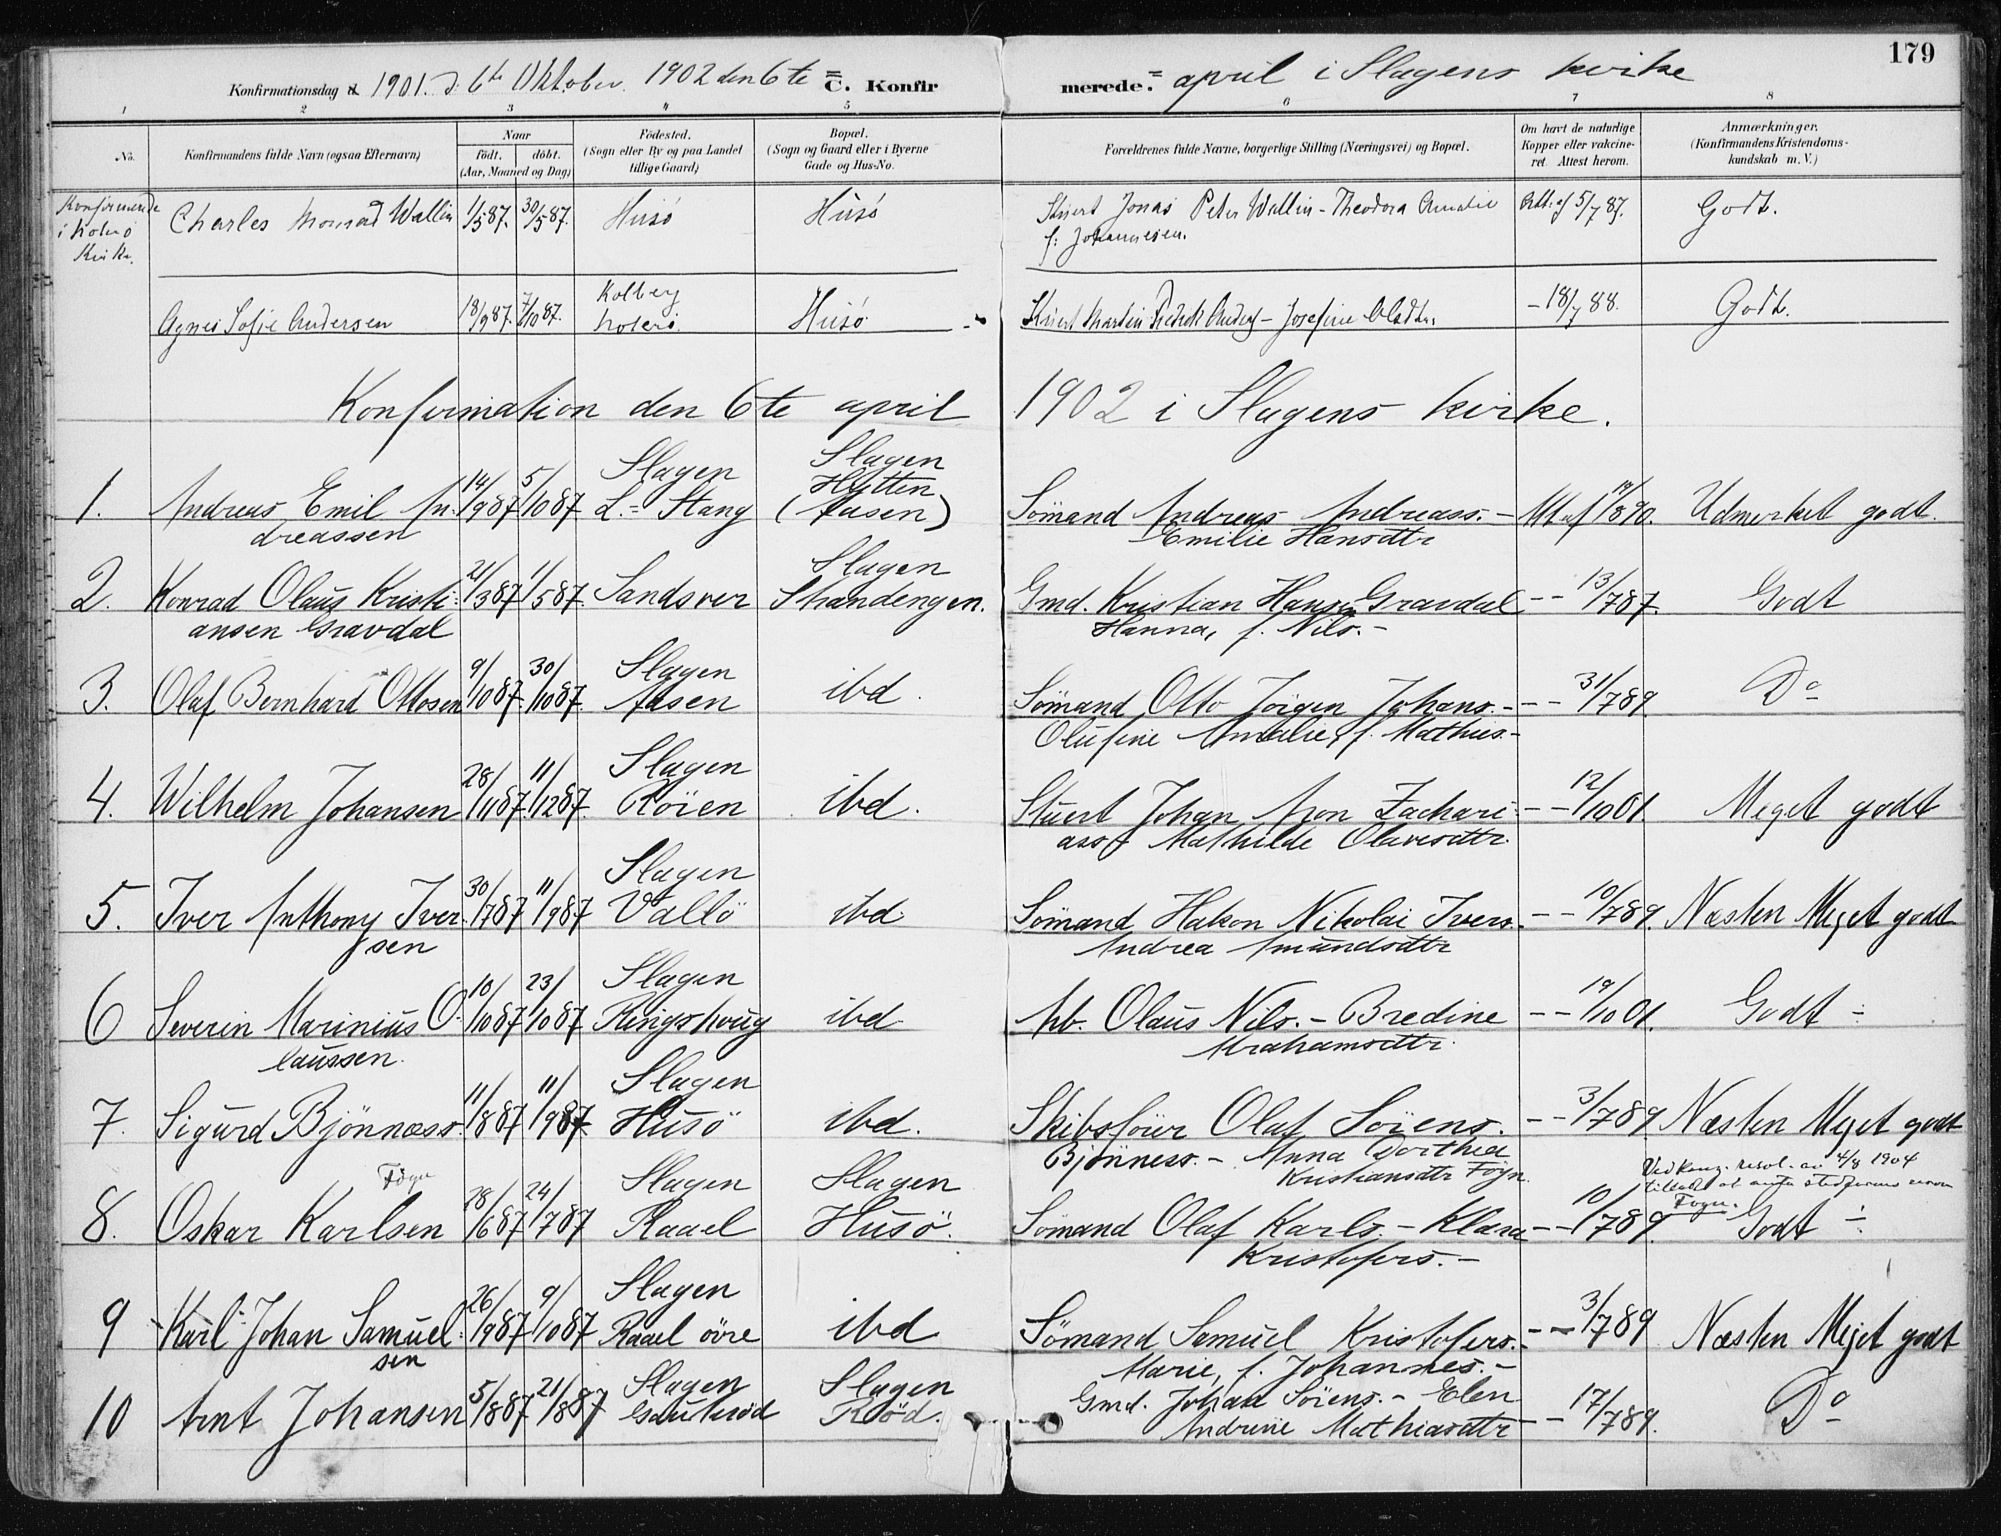 179
Konfirmationsdag d. 1901. d. 6te Oktober. 1902 den 6te C. Konfir merede. april i Slagens kirke
1 2 3 4 5 6 7 8
No. Konfirmandens fulde Navn (ogsaa Efternavn) Naar födt. döbt. (Aar, Maaned og Dag) Födested. (Sogn eller By og paa Landet tillige Gaard) Bopæl. (Sogn og Gaard eller i Byerne Gade og Hus-No. Forældrenes fulde Navne, borgerlige Stilling (Næringsvei) og Bopæl. Om havt de naturlige Kopper eller vakcineret. Attest herom. Anmærkninger. (Konfirmandens Kristendomskundskab m. V.)
i Nøterø Kirke.
Charles Monrad Wallin 1/5 87. 30/5 87. Husö Husö Stuert Jonas Peter Wallin - Theodora Amalie Att. af 5/7 87. Godt.
f: Johannesen.
Agnes Sofie Andersen 18/9 87. 7/10 87. Kolberg Nøterö Husö Martin - Josefine - 18/7 88. Godt.
Konfirmation den 6te april 1902 i Slagens kirke.
1. Andreas Emil An- 14/9 87 5/10 87 Slagen L. Stang Slagen Hytten (Aasen) Sömand Andreas Andreass. - Att af 14/8 90. Udmerket godt.
dreassen Emilie Hansdtr
2. Konrad Olaus Kristi- 21/3 87 1/5 87. Sandsver Slagen Strandengen. Gmd. Kristian Hans. Gravdal - - 13/7 87. Godt
ansen Gravdal Hanna, f. Nils. -
3. Olaf Bernhard Ottosen 9/10 87 30/10 87. Slagen Aasen ibd. Sömand Otto Jörgen Johans. - - - 31/7 89. Do
Olufine Amalie, f. Mathias. -
4. Wilhelm Johansen 28/11 87. 11/12 87. Slagen Röien ibd. Stuert Johan Aron Zachari- - - 12/10 01. Meget godt
ass. Mathilde Olavesdtr.
5. Iver Anthony Iver- 30/7 87 11/9 87 Slagen Vallö ibd. Sömand Hakon Nikolai Ivers. - - 10/7 89. Næsten Meget godt
sen Andrea Amundsdtr
6 Severin Marinius O- 10/10 87 23/10 87 Slagen Ringshoug ibd Arb. Olaus Nils. - Bredine - - 19/10 01. Godt ÷
laussen. Abrahamsdttr.
7. Sigurd Bjönness. 11/8 87 11/9 87. Slagen Husö ibd. Skibsförer Olaf Sörens. - - 3/7 89. Næsten Meget godt
Bjönness. - Anna Dorthea
Kristiansdtr Föyn.
Ved resol. av 4/8 1904
Föyn
8. Oskar Karlsen 28/6 87 24/7 87 Slagen Raael Slagen Husö. Sömand Olaf Karls. - Klara - - 10/7 89. Godt ÷
Kristofers. -
9 Karl Johan Samuel- 26/9 87 9/10 87 Slagen Raael övre ibd Sömand Samuel Kristofers. - - - 3/7 89 Næsten Meget godt
sen Marie, f. Johannes. -
10 Arnt Johansen 5/8 87 21/8 87 Slagen Gauteröd Slagen Röd. Gmd. Johan Sörens. - Elen - - 17/7 89. Do
Andrine Mathiasdtr